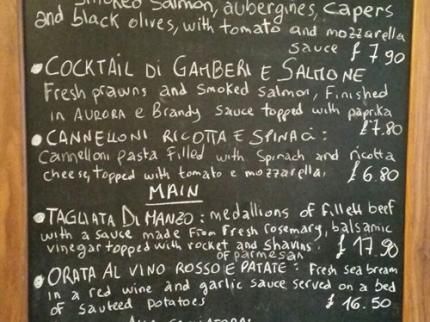 Smoked Salmon, aubergines, capers
and black olives, with tomato and mozzarella
sauce £ 7.90
• COCKTAIL Di GAMBERI E SALMONE
Fresh prawns and smoked salmon, finished
in AURORA e Brandy sauce topped with paprika
£7.80
• CANNELLONI RICOTTA E SPINACI:
Cannelloni pasta filled with Spinach and ricotta
cheese, topped with tomato e mozzarella. £ 6.80
MAIN
• TAGLIATA Di MANZO: medallions of fillett beef
with a sauce made from fresh rosemary, balsamic
vinegar topped with rocket and shavins £ 17.90
of parmesan
• ORATA AL VINO ROSSO E PATATE: Fresh sea bream
in a red wine and garlic sauce served on a bed
of sauteed potatoes £ 16.50